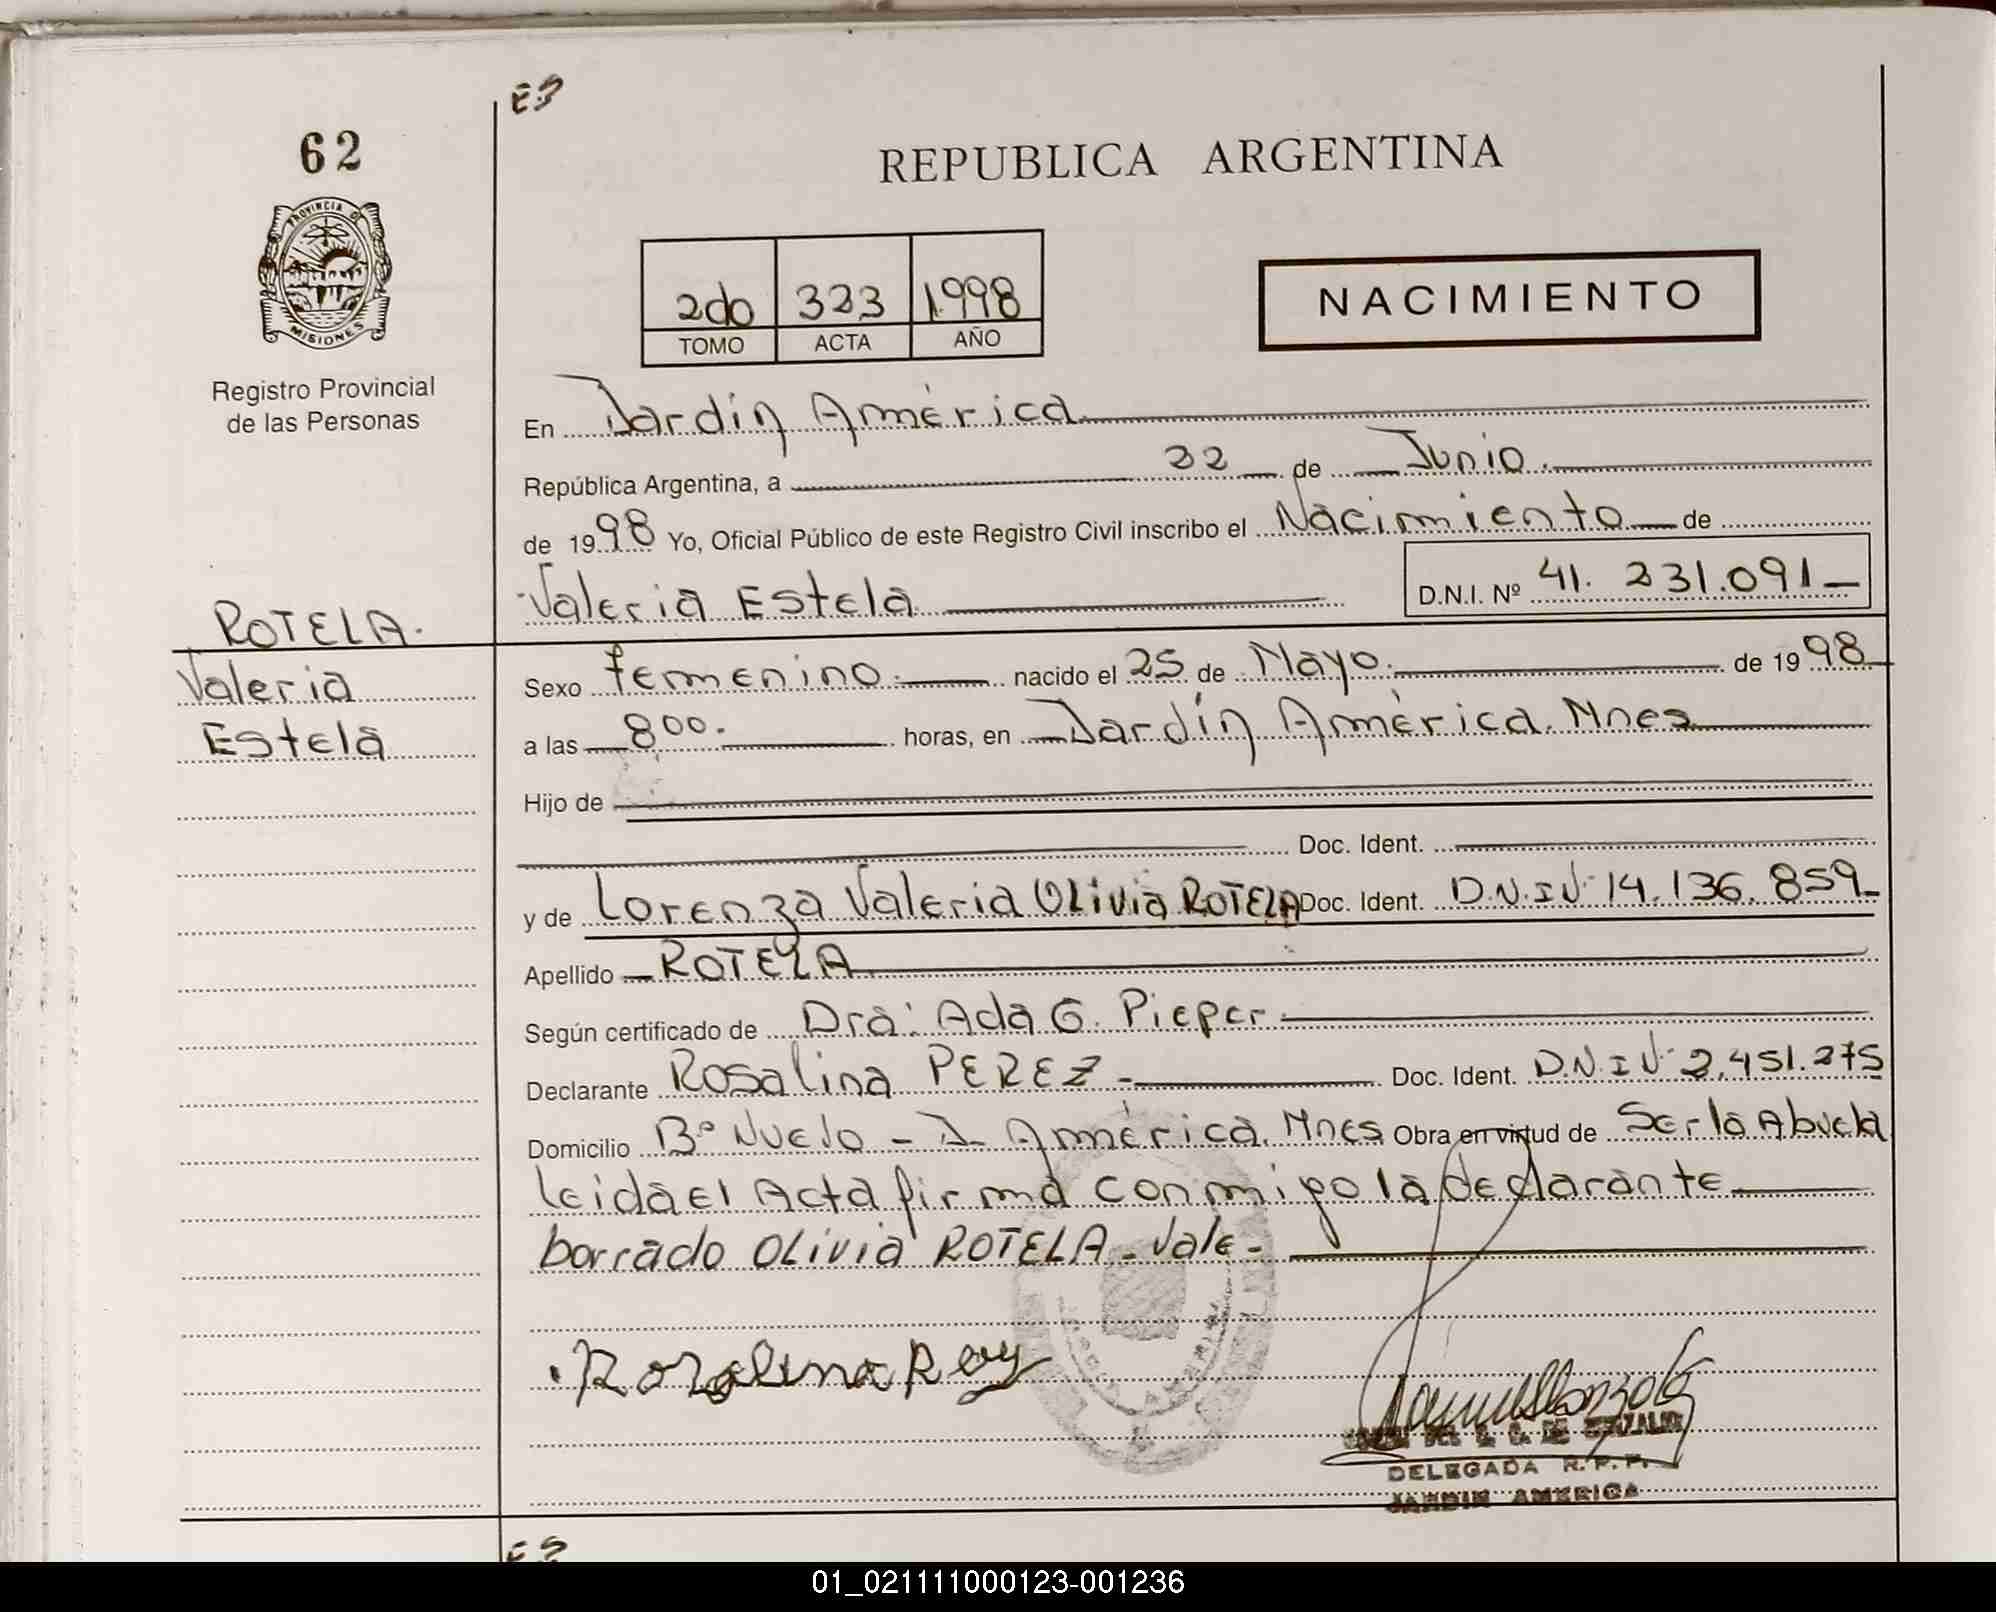 E3
62
REPUBLICA ARGENTINA
PROVINCIA DE
MISIONES
2do 323 1998
TOMO ACTA AÑO
NACIMIENTO
Registro Provincial
de las Personas
En Jardín América
República Argentina, a 22 de Junio.
de 1998 Yo, Oficial Público de este Registro Civil inscribo el Nacimiento de
Valeria Estela D.N.I. Nº 41.231.091
ROTELA.
Valeria
Estela
Sexo femenino. nacido el 25 de Mayo. de 1998
a las 8,00. horas, en Jardín América. Mnes
Hijo de
Doc. Ident.
y de Lorenza Valeria OLivia ROTELA Doc. Ident. D.N.I Nº 14.136.859
Apellido ROTELA
Según certificado de Dra: Ada G. Pieper.
Declarante Rosalina PEREZ Doc. Ident. D.N.I Nº 2.451.275
Domicilio Bº Nuevo - J. América. Mnes Obra en virtud de Ser la Abuela
leida el Acta firma conmigo la declarante
borrado OLivia ROTELA - Vale -
DELEGADA R. P. P.
JARDIN AMERICA
01_021111000123-001236